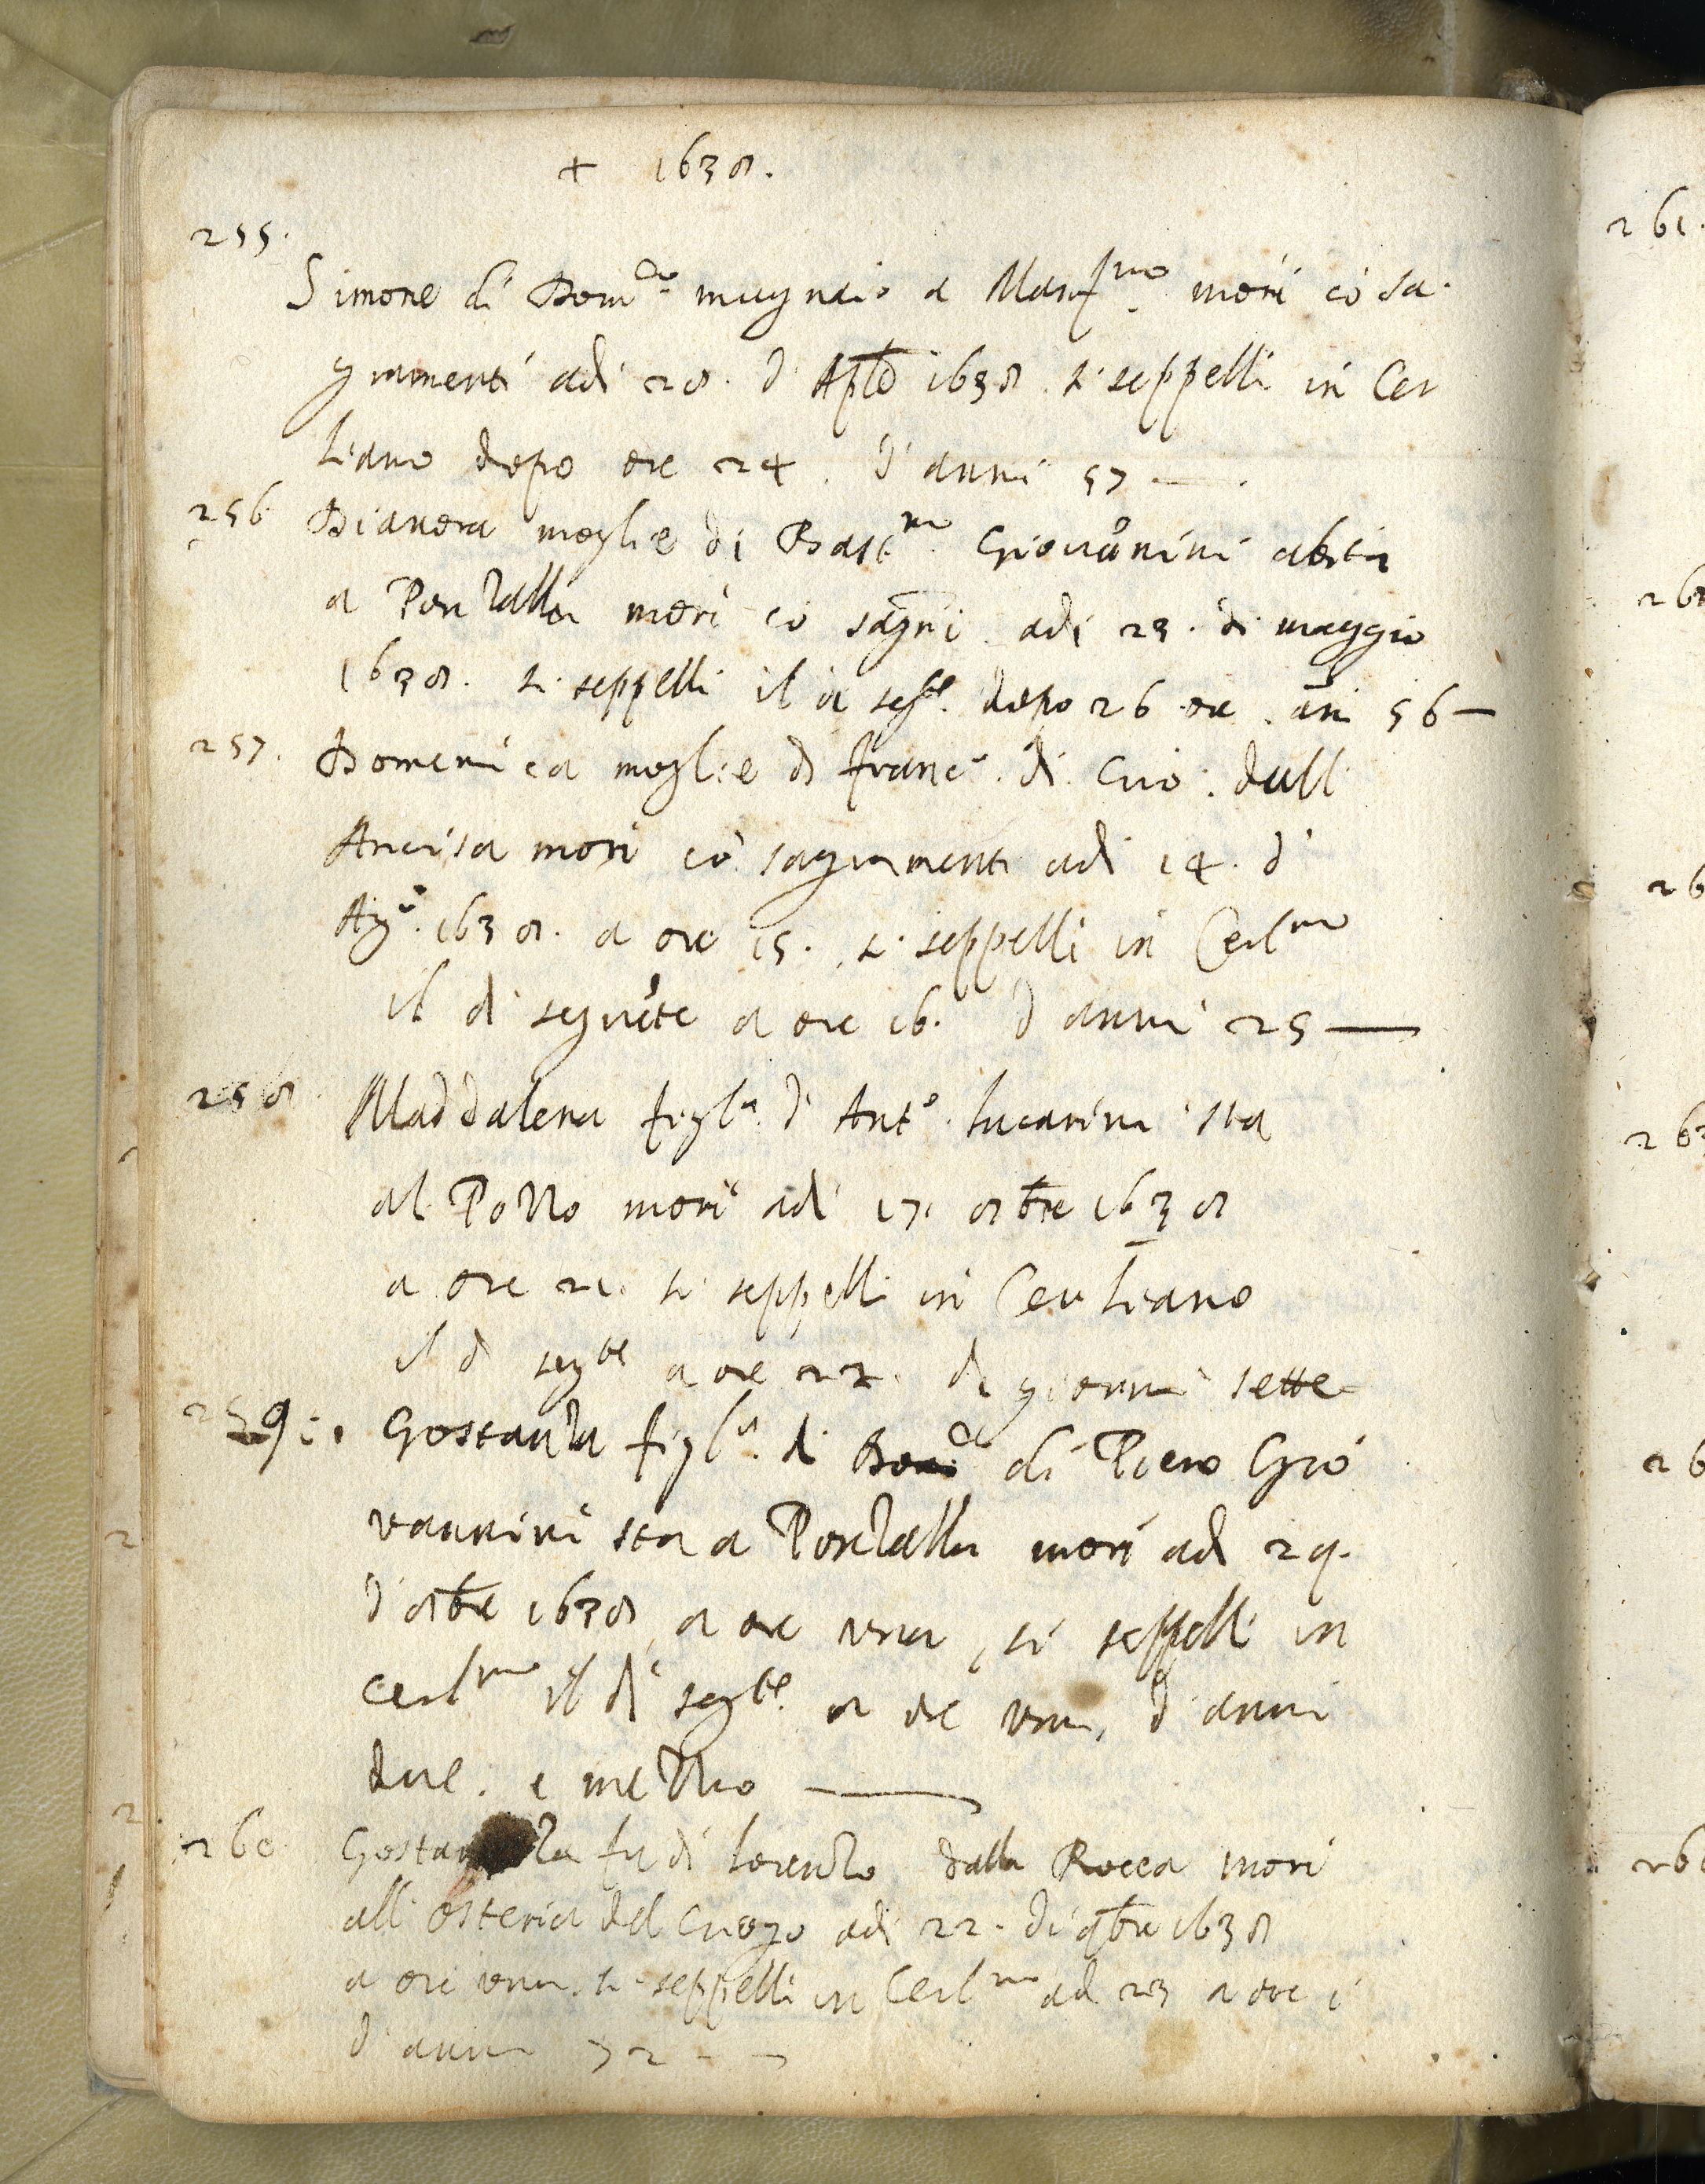 + 1638.
255.
Simone di Dom.co mugnaio a Manf.no morì cō sa-
gramenti adi 28. d' Aple 1638. si seppellì in Cer
liano dopo ore 24. d' anni 57 —
256 Dianora moglie di Bast.no Giovānini abita
a Pontalla morì cō sagrī adi 23. di maggio
1638. si seppellì il dì seg.te dopo 26 ore . āni 56 —
257. Domenica moglie di franc.o di Giō: dall
Ancisa morì cō sagramenti adi 14. d'
Ag.o 1638. a ore 15. si seppellì in Cerl.no
il dì seguēte a ore 16. d' anni 25 —
258 Maddalena figl.a d' Ant.o Lucarini sta
al Pozzo morì adi 17. 8bre 1638
a ore 21. si seppellì in Cerliano
il dì seg.te a ore 22. di giorni sette
259. Gostanza figl.a di Dom.co di Piero Gio
vannini sta a Pontalla morì adi 29.
d' 8bre 1638 a ore una, si seppellì in
Cerl.no il dì seg.te a ore una, d' anni
due. e mezzo —
260 Gostanza fu di Lorenzo dalla Rocca morì
all' osteria del adi 22. di 9bre 1638
a ore una. si seppellì in Cerl.no adi 23 a ore 1
d' anni 72 - -
261.
26
26
263
26
26